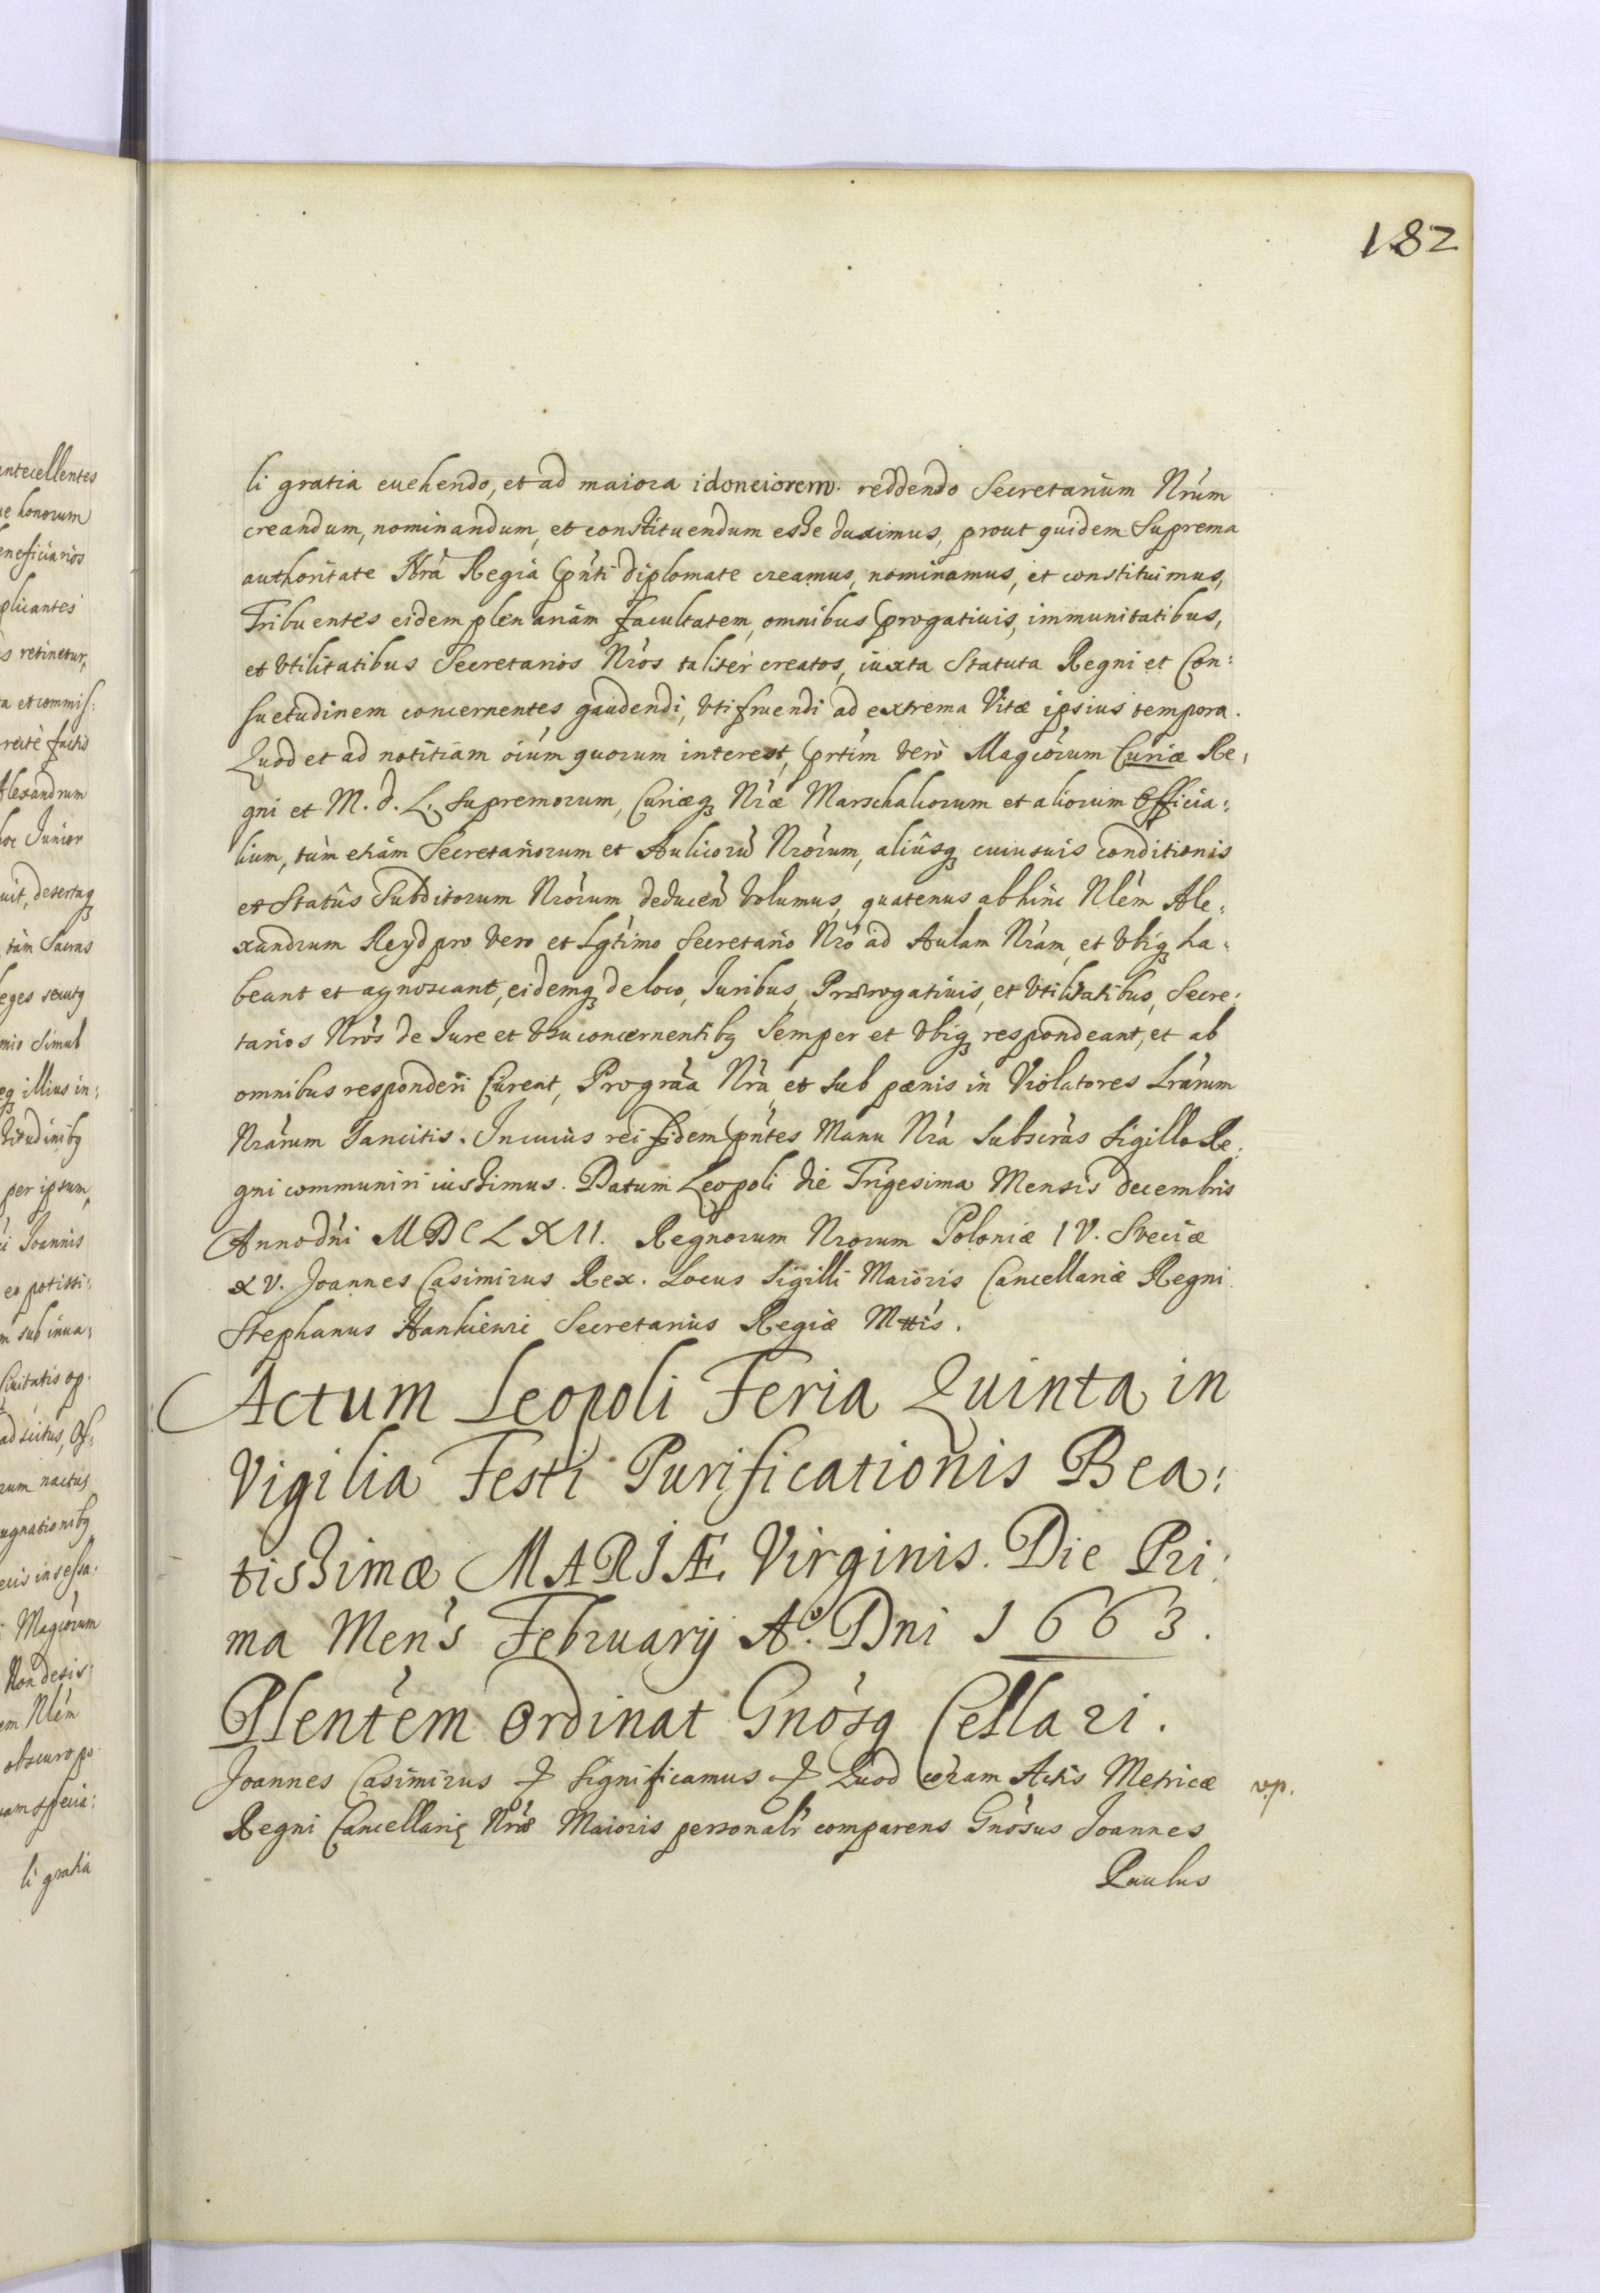 182
li gratia euehendo, et ad maiora idoneiorem reddendo Secretarium Nrum
creandum, nominandum, et constituendum esse duximus, prout quidem Suprema
authoritate Nra Regia pnti diplomate creamus, nominamus, et constituimus,
Tribuentes eidem plenariam facultatem, omnibus progatiuis, immunitatibus,
et Vtilitatibus Secretarios Nros taliter creatos, iuxta Statuta Regni et Con:
suetudinem concernentes gaudendi, Vtifruendi ad extrema Vitæ ipsius tempora.
Quod et ad notitiam oium quorum interest, prtim vero Magcorum Curiæ Re:
gni et M. d. L. Supremorum, Curiæq Nræ Marschalcorum et aliorum Officia:
lium, tum etiam Secretariorum et Aulicorum Nrorum, aliusq cuiusuis conditionis
et Status Subditorum Nrorum deducen volumus, quatenus abhinc Nlem Ale:
xandrum Reyd pro vero et Lgtimo Secretario Nro ad Aulam Nram, et vbiq ha:
beant et agnoscant, eidemq de loco, Juribus, Prærogatiuis, et Vtilitatibus, Secre:
tarios Nros de Jure et Vsu concernentibq Semper et Vbiq respondeant, et ab
omnibus responderi Curent, Pro graa Nra, et sub pœnis in Violatores Lrarum
Nrarum Sancitis. In cuius rei fidem pntes Manu Nra Subscras Sigillo Re:
gni communiri iussimus. Datum Leopoli die Trigesima Mensis decembris
Anno dni MDCLXII. Regnorum Nrorum Poloniæ IV. Sveciæ
XV. Joannes Casimirus Rex. Locus Sigilli Maioris Cancellariæ Regni
Stephanus Hankiewic Secretarius Regiæ Mttis.
Actum Leopoli Feria Quinta in
Vigilia Festi Purificationis Bea:
tissimæ MARIÆ Virginis. Die Pri:
ma Mens February A.º Dni 1663.
Plentem Ordinat Gnosq Cellari.
Joannes Casimirus Significamus Quod coram Actis Metricæ
v.p.
Regni Cancellarię Nræ Maioris personalr comparens Gnosus Joannes
Paulus